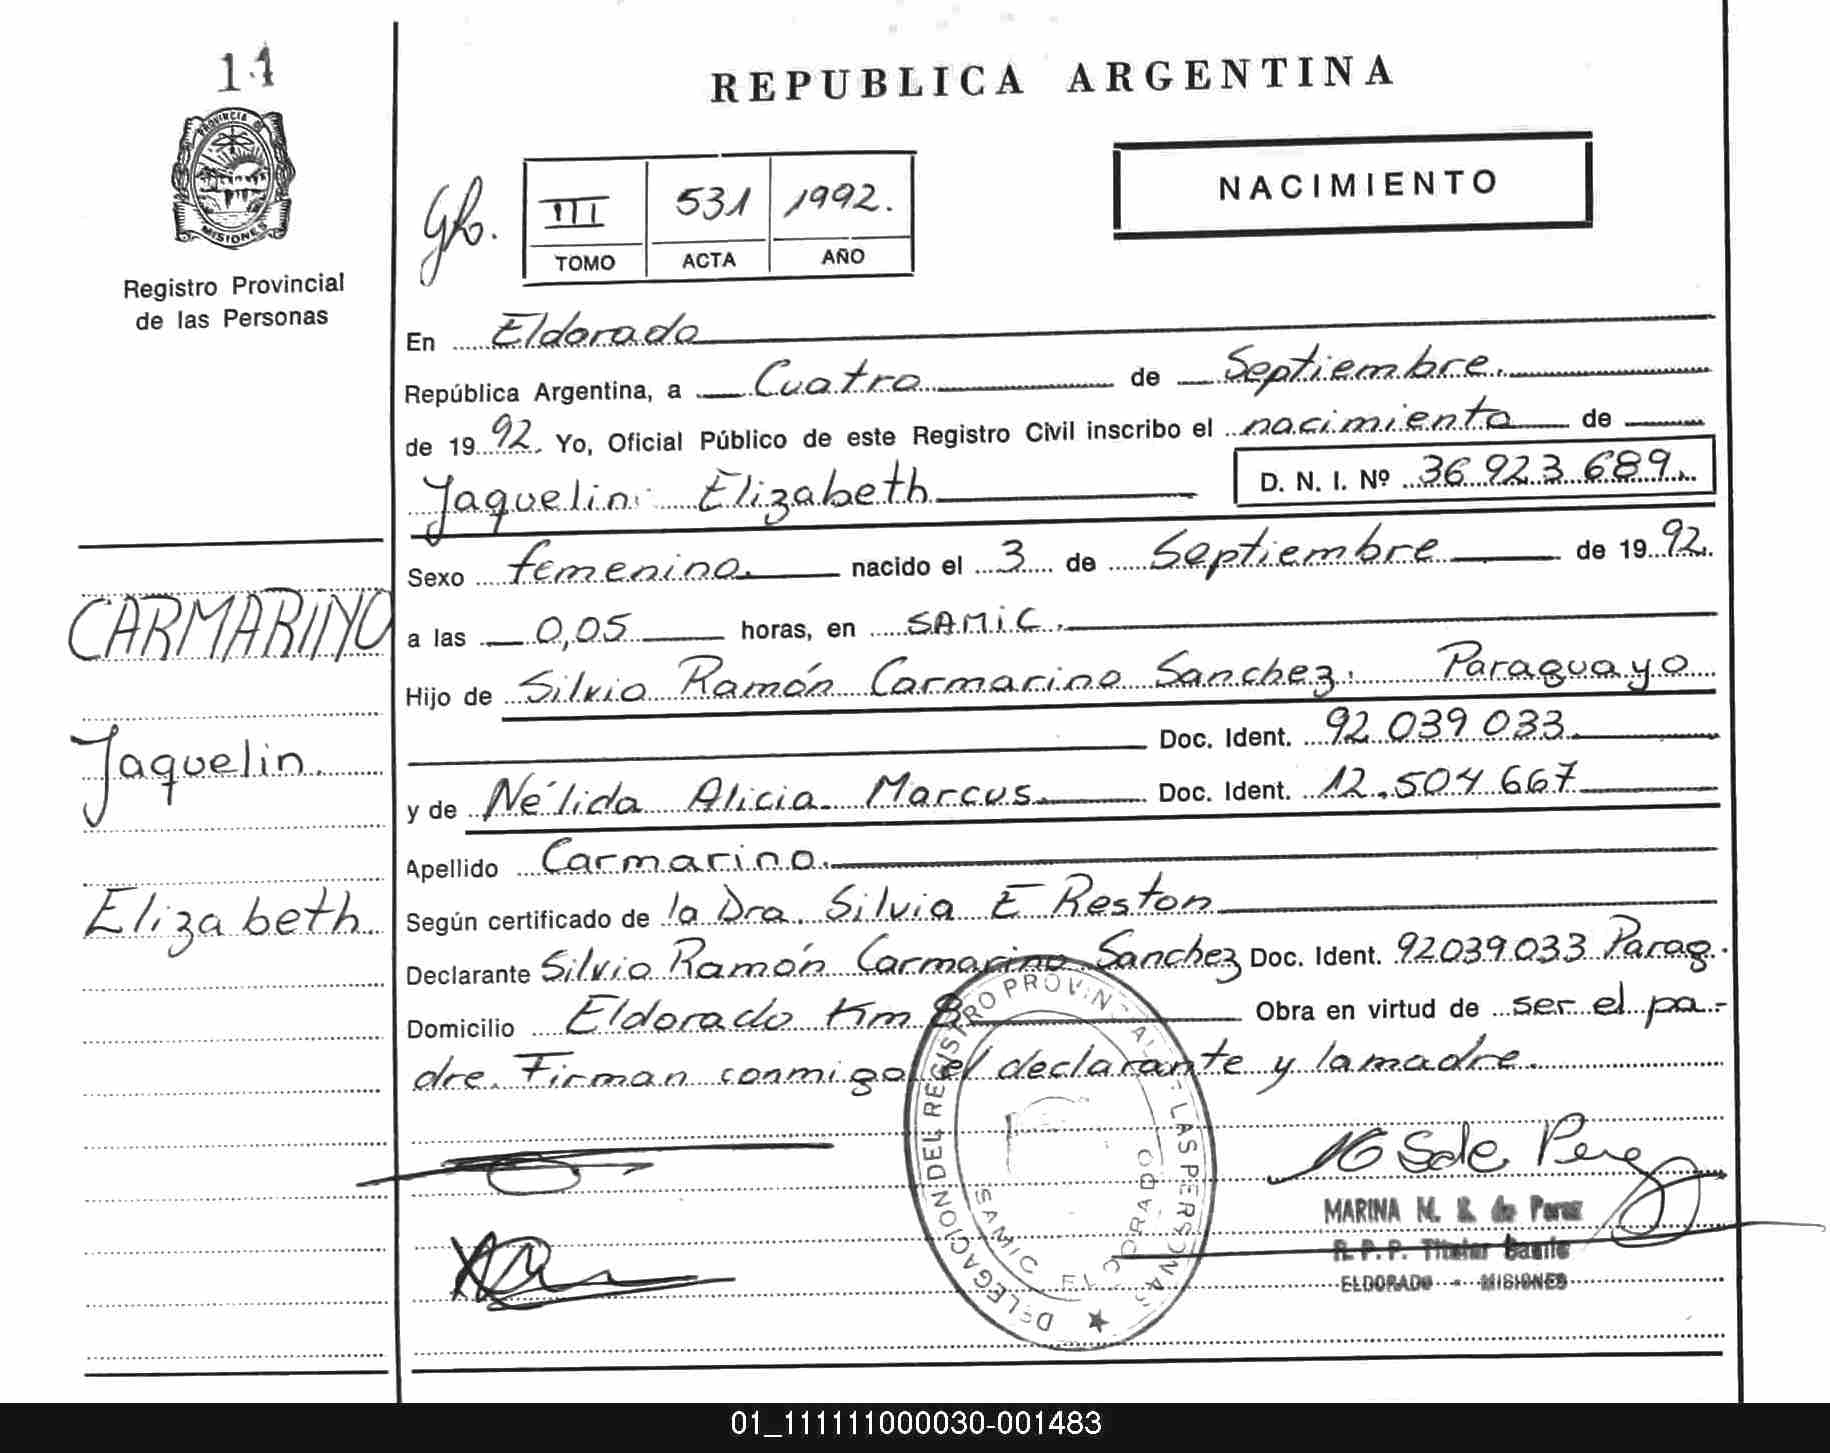 11
PROVINCIA DE
MISIONES
Registro Provincial
de las Personas
REPUBLICA ARGENTINA
NACIMIENTO
III 531 1992.
TOMO ACTA AÑO
En Eldorado
República Argentina, a Cuatro de Septiembre.
de 1992. Yo, Oficial Público de este Registro Civil inscribo el nacimiento de
Jaquelin Elizabeth
D. N. I. Nº 36 923 689.
Sexo femenino. nacido el 3 de Septiembre de 1992.
CARMARINO
a las 0,05 horas, en SAMIC.
Hijo de Silvio Ramón Carmarino Sanchez. Paraguayo
Doc. Ident. 92 039 033
Jaquelin.
y de Nélida Alicia Marcus Doc. Ident. 12.504 667
Apellido Carmarino.
Elizabeth.
Según certificado de la Dra. Silvia E Reston
Declarante Silvio Ramón Carmarino Sanchez Doc. Ident. 92039033 Parag.
Domicilio Eldorado Km 8 Obra en virtud de ser el pa-
dre. Firman conmigo el declarante y la madre.
DELEGACION DEL REGISTRO PROVINCIAL LAS PERSONAS
SAMIC ELDORADO
MARINA M. de Perez
R. P. P. Titular
ELDORADO - MISIONES
01_111111000030-001483